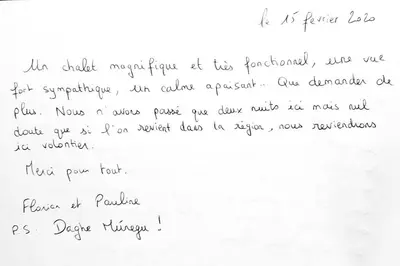 le 15 février 2020
Un chalet magnifique et très fonctionnel, une vue
fort sympathique, un calme apaisant... Que demander de
plus. Nous n'avons passé que deux nuits ici mais nul
doute que si l'on revient dans la région, nous reviendrons
ici volontier.
Merci pour tout.
Florian et Pauline
P.S. Daghe Múregu !